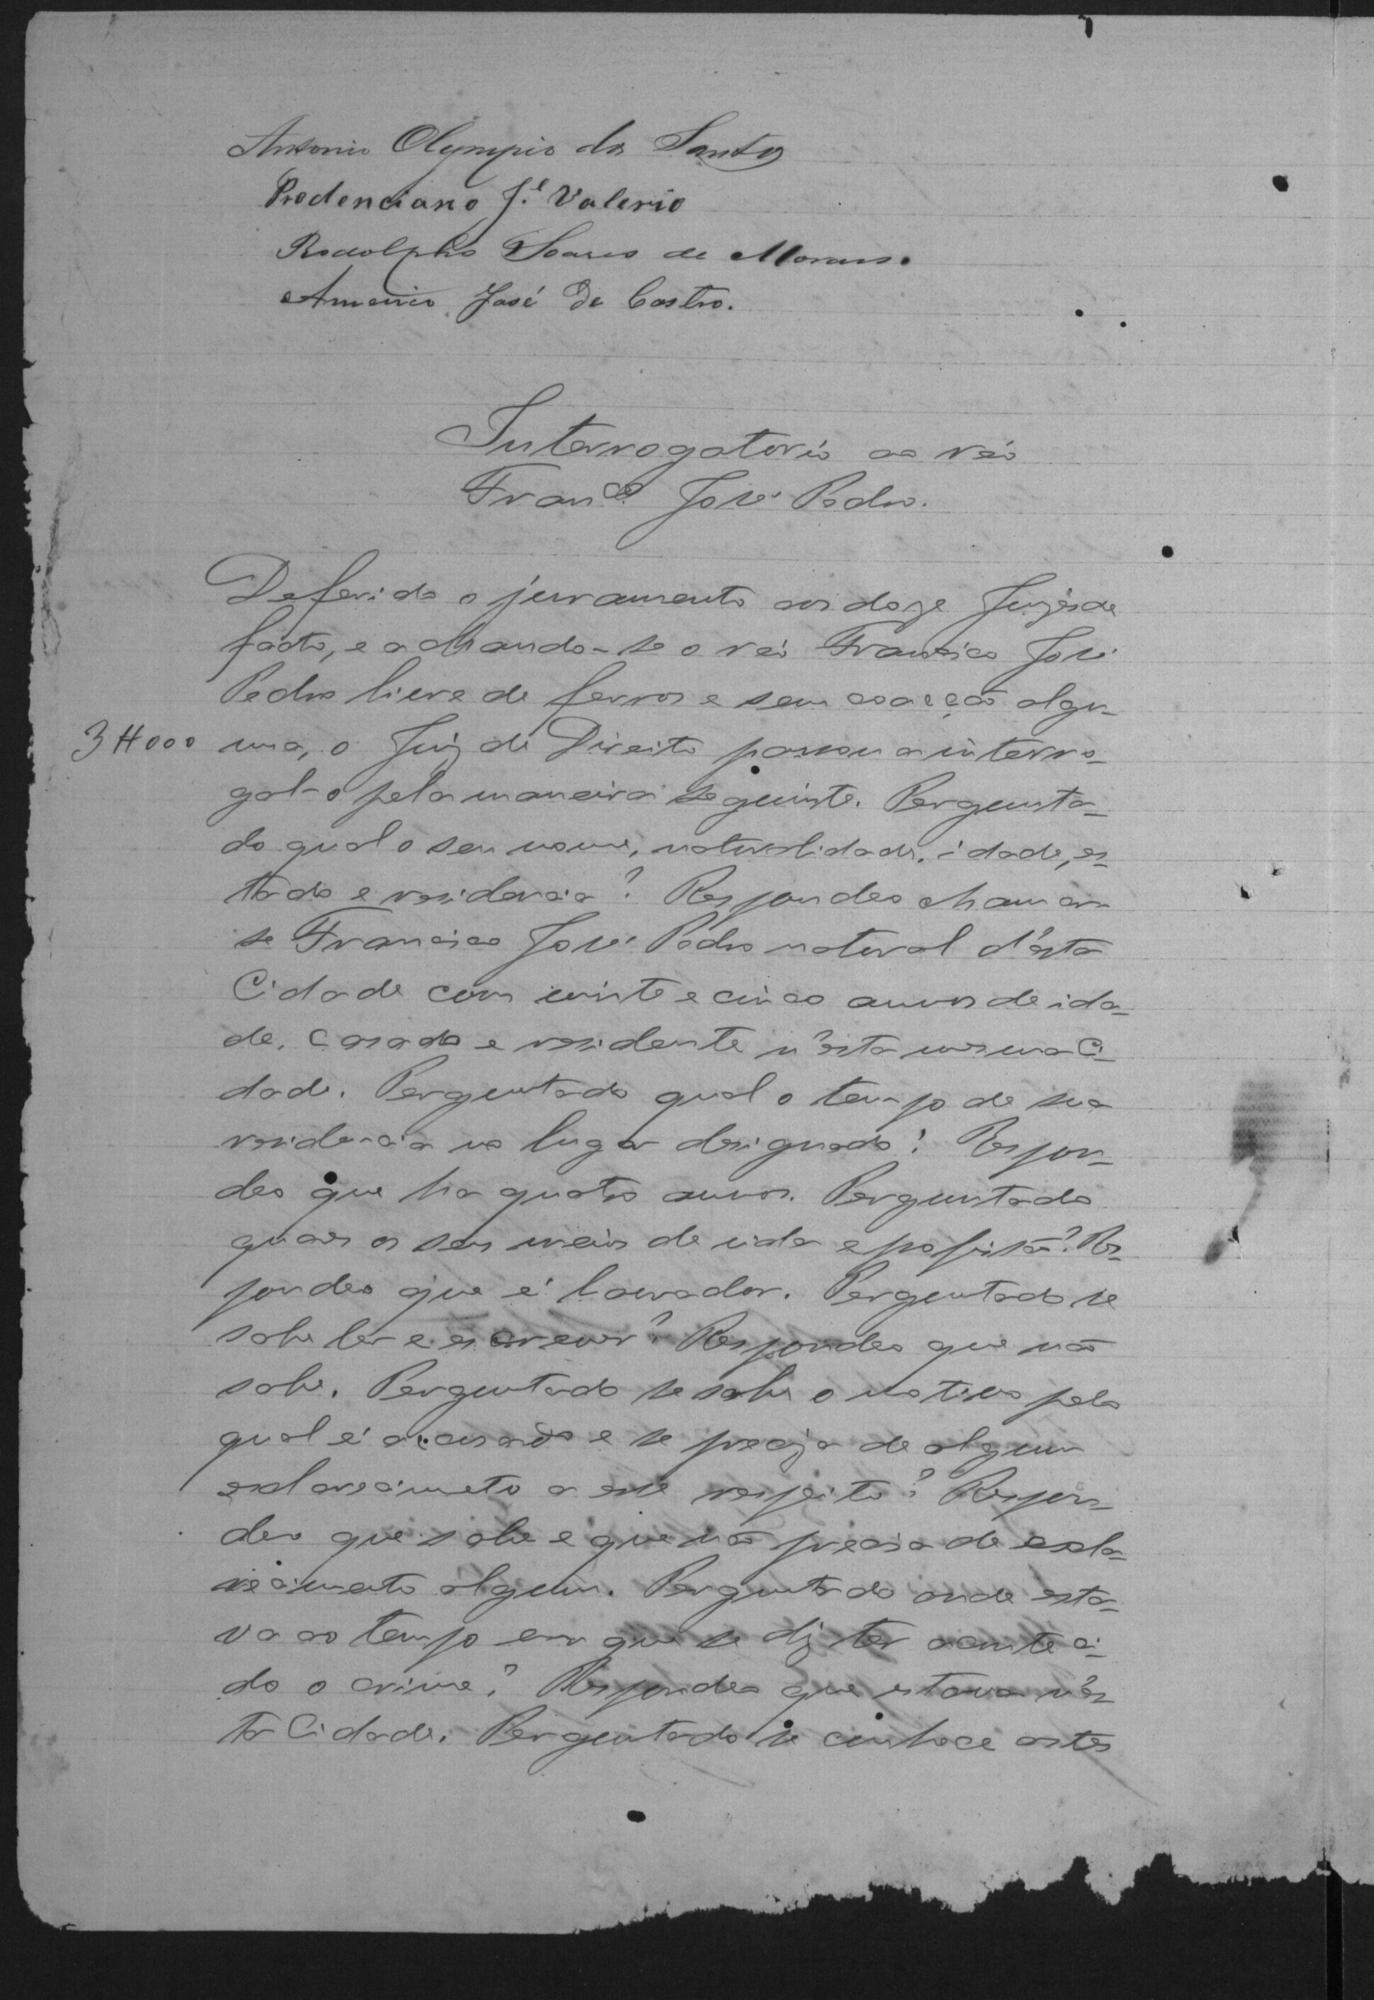 Antonio Olympio dos Santos
Prodenciano J.e Valerio
Rodolpho Soares de Moraes.
Americo José de Castro.
Interrogatorio ao réo
Franco José Pedro.
Deferido o juramento aos doze Juizes de
facto, e achando-se o réo Francisco José
Pedro livre de ferros e sem coacção algu-
3#000 ma, o Juiz de Direito passou a interro-
gal-o pela maneira seguinte. Pergunta-
do qual o seu nome, naturalidade, idade, es-
tado e residencia? Respondeo chamar-
se Francisco José Pedro natural d'esta
Cidade com vinte e cinco annos de ida-
de, casado e residente n'esta mesma Ci-
dade. Perguntado qual o tempo de sua
residencia no lugar designado? Respon-
deo que ha quatro annos. Perguntado
quaes os seus meios de vida e profissão? Res-
pondeo que é lavrador. Perguntado se
sabe ler e escrever? Respondeo que não
sabe. Perguntado se sabe o motivo pelo
qual é accusado e se preciza de algum
esclarecimento a esse respeito? Respon-
deo que sabe e que não precisa de escla-
recimento algum. Perguntado onde esta-
va ao tempo em que se diz ter aconteci-
do o crime? Respondeo que estava n'es-
ta Cidade. Perguntado se conhece as tes